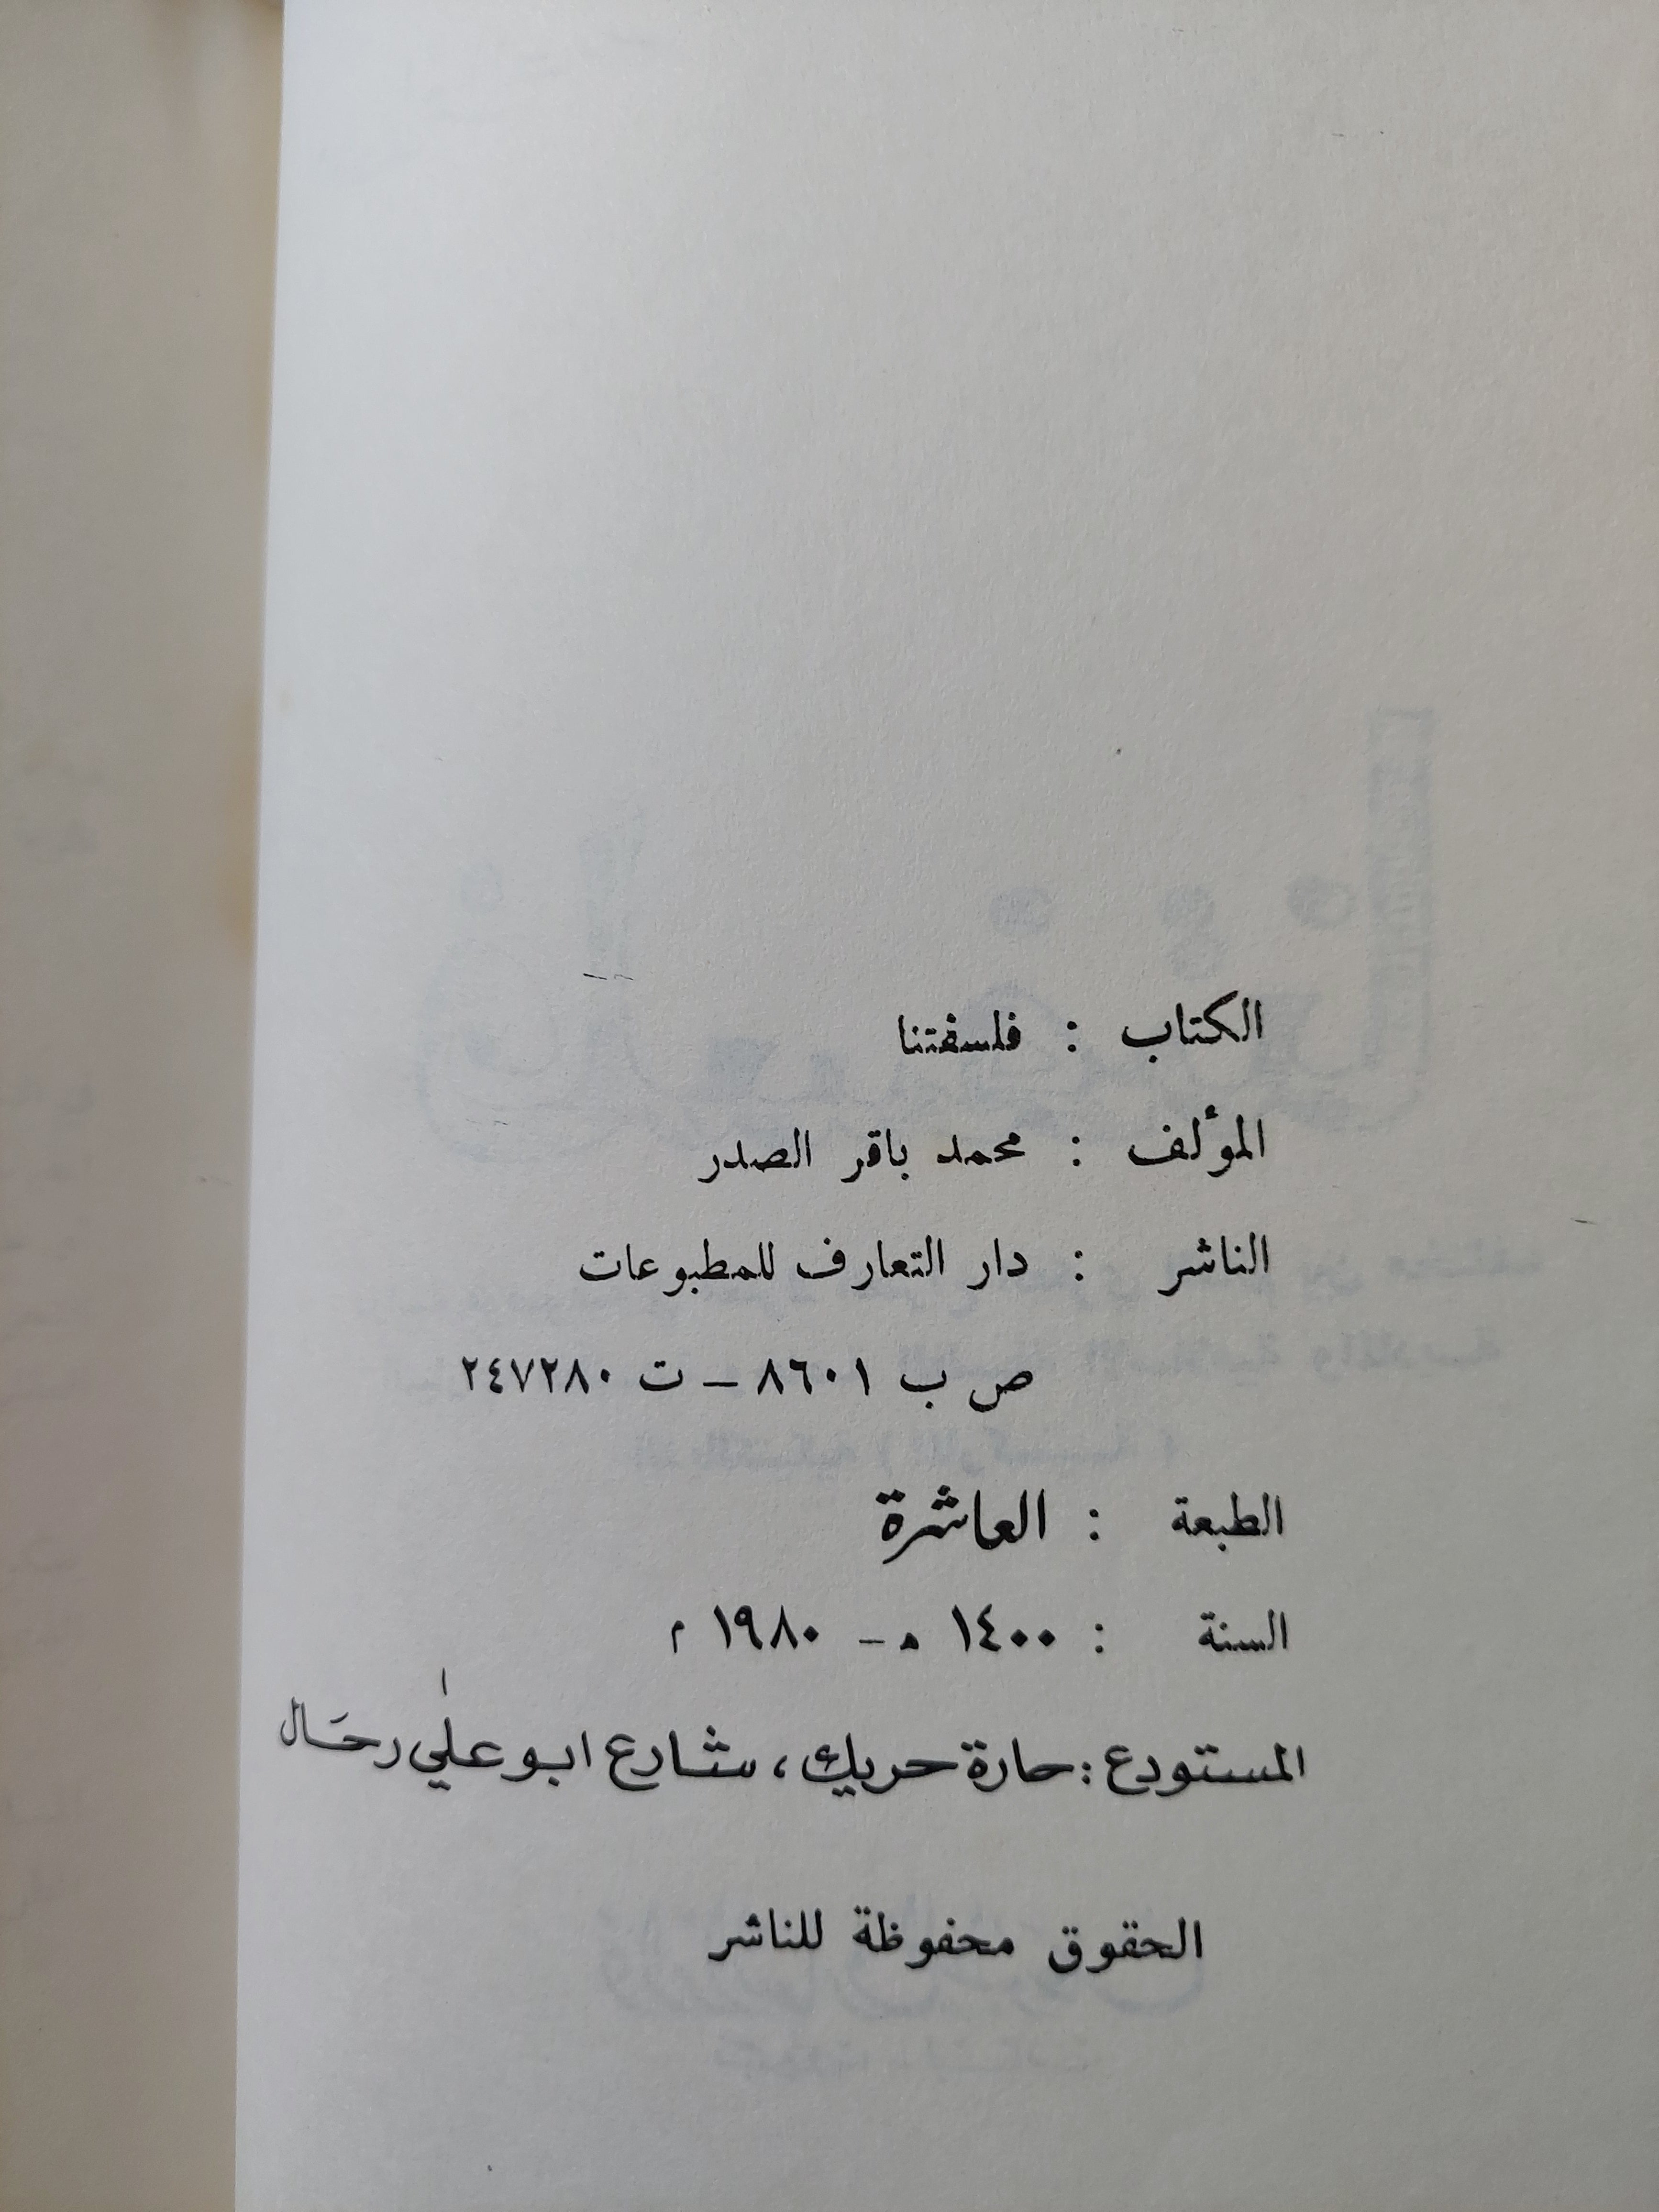 الكتاب : فلسفتنا
المؤلف : محمد باقر الصدر
الناشر : دار التعارف للمطبوعات
ص ب ٨٦٠١ – ت ٢٤٧٢٨٠
الطبعة : العاشرة
السنة : ١٤٠٠ هـ – ١٩٨٠ م
المستودع : حارة حريك ، شارع ابو علي رحال
الحقوق محفوظة للناشر